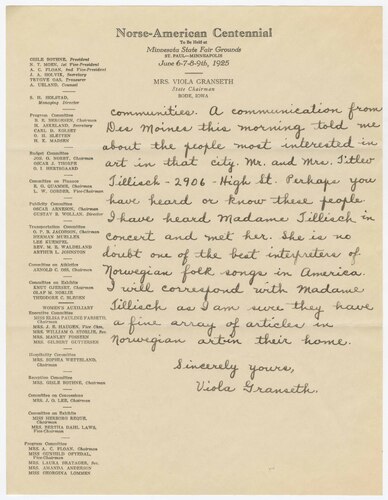 Norse-American Centennial
To Be Held at
Minnesota State Fair Grounds
ST. PAUL—MINNEAPOLIS
June 6-7-8-9th, 1925
MRS. VIOLA GRANSETH
State Chairman
BODE, IOWA
GISLE BOTHNE, President
N. T. MOEN, 1st Vice-President
A. C. FLOAN, 2nd Vice-President
J. A. HOLVIK, Secretary
TRYGVE OAS, Treasurer
A. UELAND, Counsel
S. H. HOLSTAD,
Managing Director
Program Committee
H. ASKELAND, Secretary
CARL D. KOLSET
O. H. SLETTEN
H. K. MADSEN
Budget Committee
JOS. G. NORBY, Chairman
OSCAR J. THORPE
O. I. HERTSGAARD
Committee on Finance
E. G. QUAMME, Chairman
L. W. Vice-Chairman
Publicity Committee
OSCAR ARNESON, Chairman
GUSTAV B. WOLLAN, Director
Transportation Committee
O. P. B. JACOBSON, Chairman
HERMAN MUELLER
LEE KUEMPEL
REV. M. B. WALDELAND
ARTHUR L. JOHNSTON
Committee on Athletics
ARNOLD C. Chairman
Committee on Exhibits
KNUT GJERSET, Chairman
OLAF M. NORLIE
THEODORE G.
WOMEN'S AUXILIARY
Executive Committee
MISS ELISA PAULINE FARSETH,
Chairman
MRS. J. H. HAUGEN, Vice Chm.
MRS. WILLIAM O. STORLIE, Sec.
MRS. MANLEY FOSSEEN
MRS. GILBERT GUTTERSEN
Hospitality Committee
MRS. SOPHIA WETTELAND,
Chairman
Reception Committee
MRS. GISLE BOTHNE, Chairman
Committee on Concessions
MRS. J. O. LEE, Chairman
Committee on Exhibits
MISS HERBORG REQUE,
Chairman
MRS. BERTHA DAHL LAWS,
Vice-Chairman
Program Committee
MRS. A. C. FLOAN, Chairman
MISS GUNHILD OFTEDAL,
Vice-Chairman
MRS. LAURA BRATAGER, Sec.
MRS. AMANDA ANDERSON
MISS GEORGINA LOMMEN
communities. A communication from
Des Moines this morning told me
about the people most interested in
art in that city. Mr. and Mrs. Titlew
Tillisch - 2906 - High St. Perhaps you
have heard or know these people.
I have heard Madame Tillisch in
concert and met her. She is no
doubt one of the best interpreters of
Norwegian folk songs in America.
I will correspond with Madame
Tillisch as I am sure they have
a fine array of articles in
Norwegian art in their home.
Sincerely yours,
Viola Granseth.